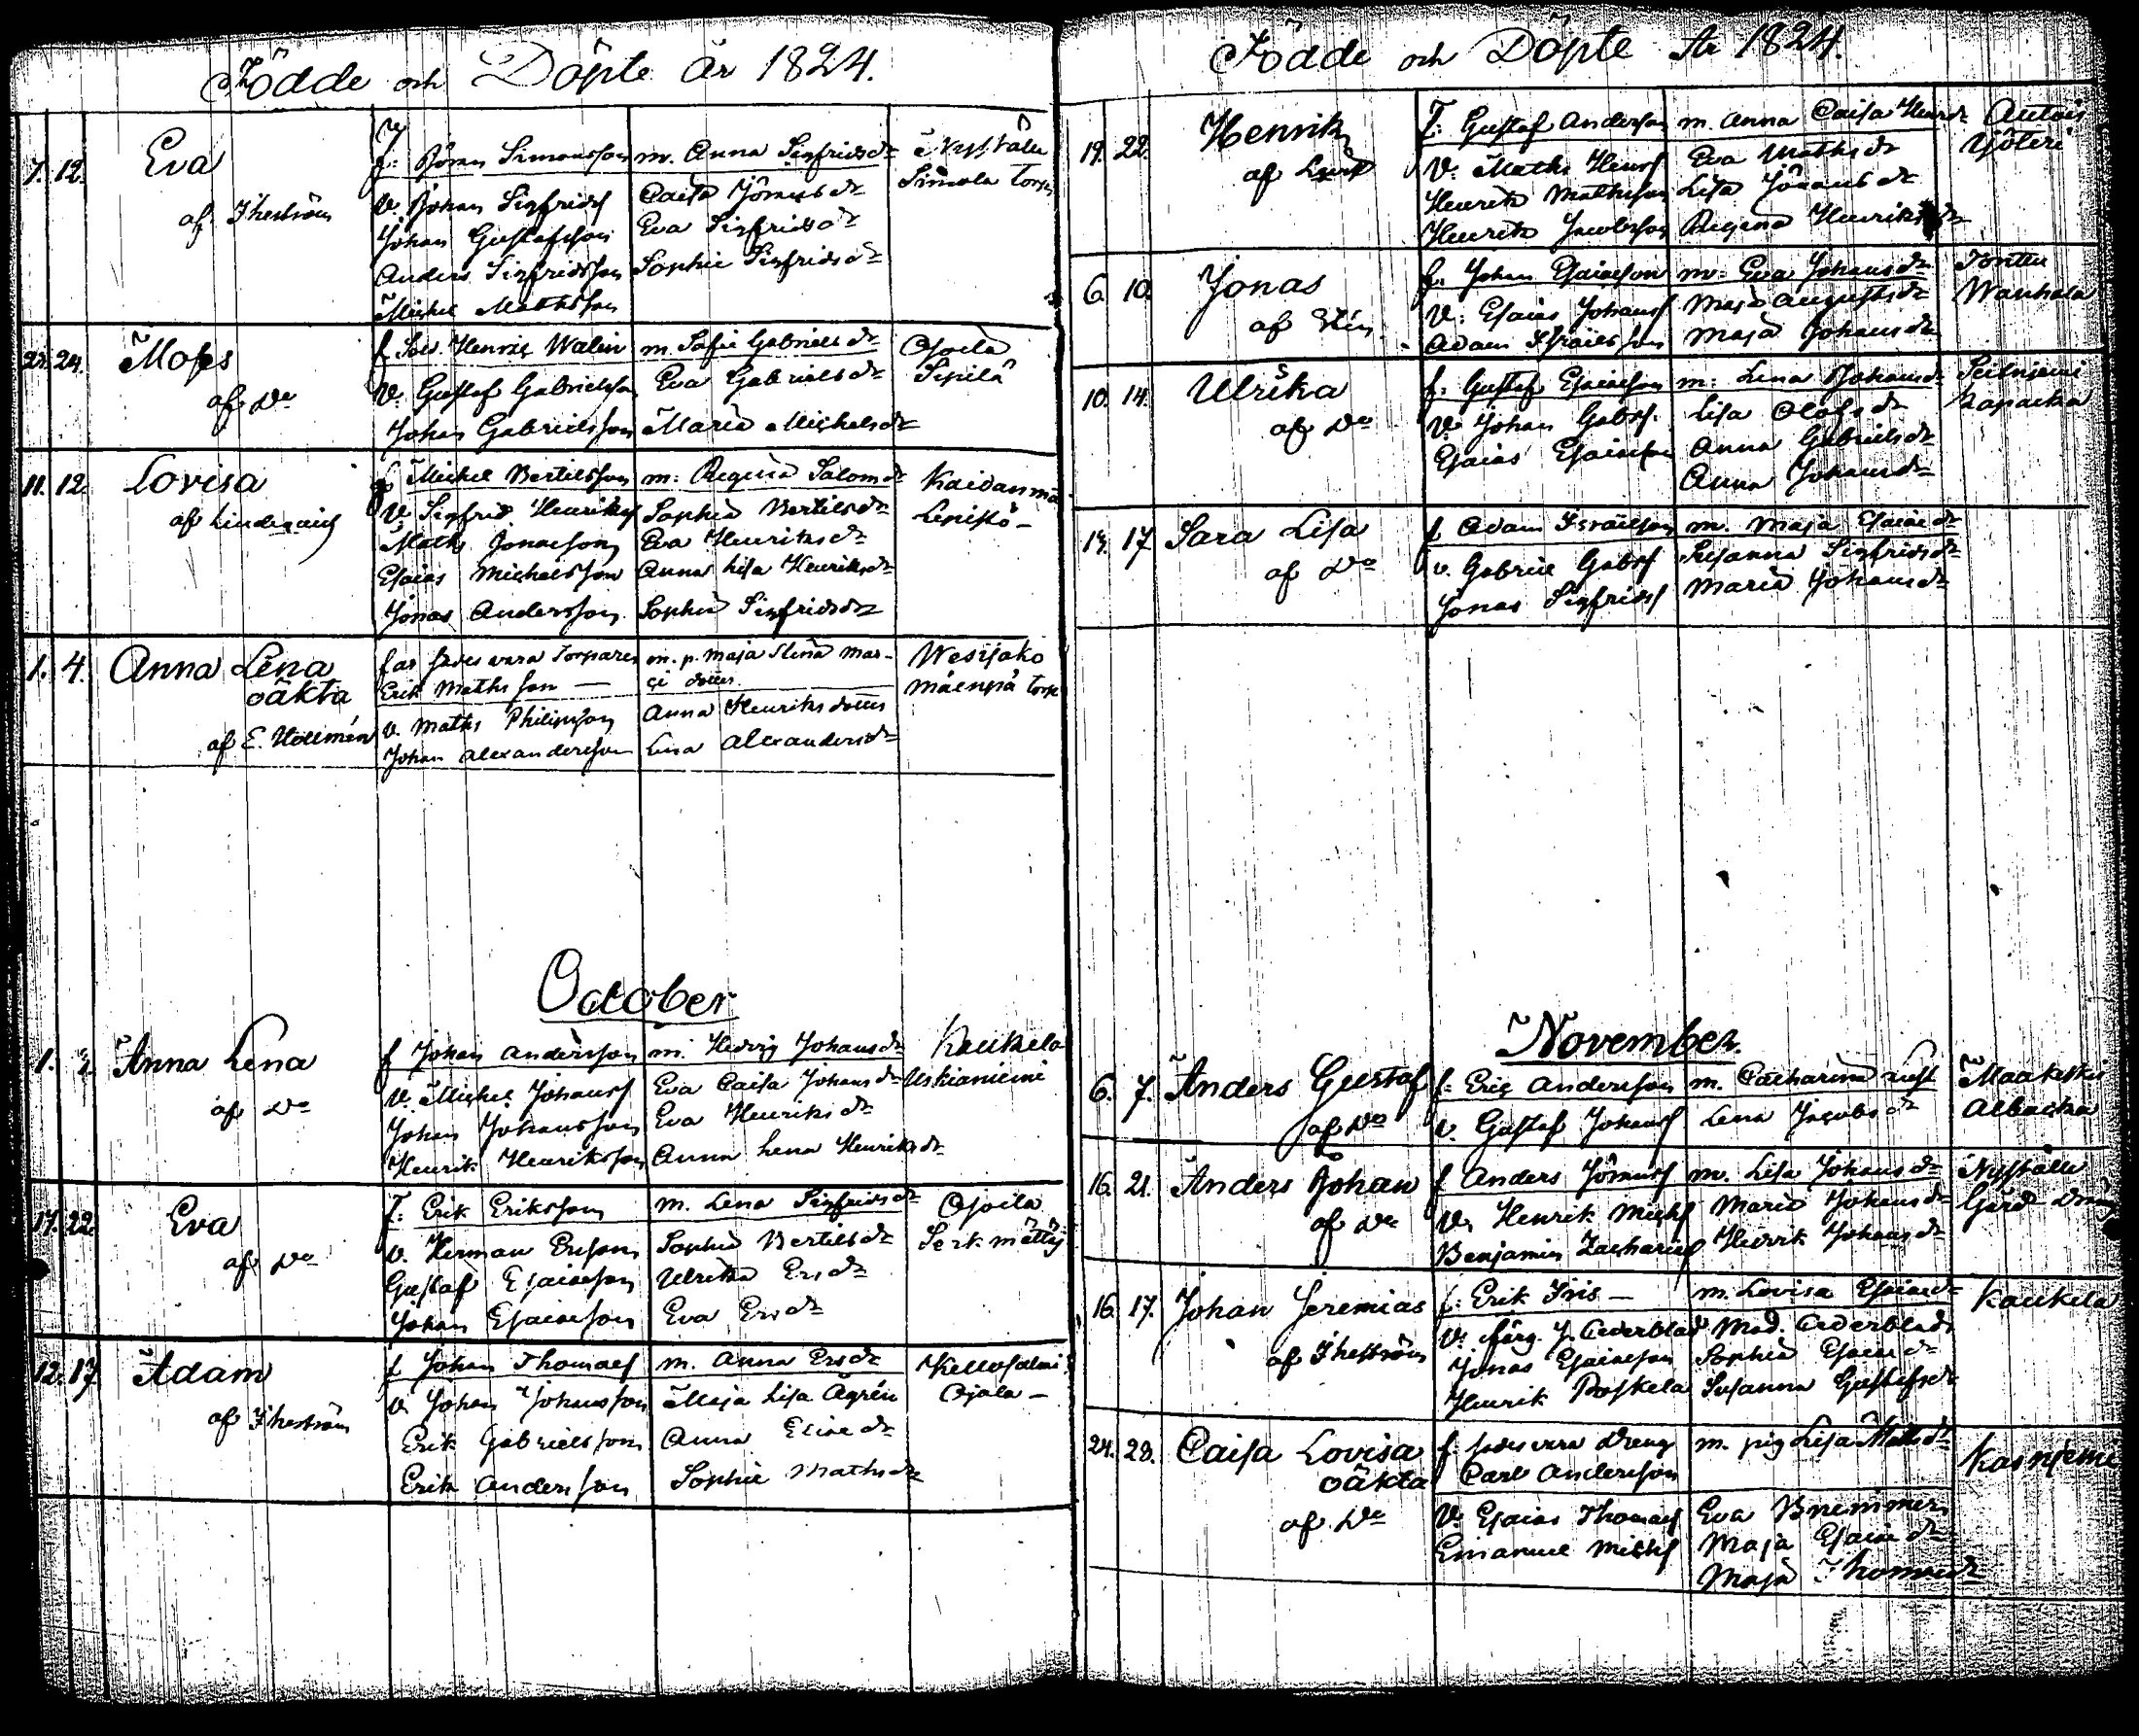 Födde och Döpte År 1824.
7. 12. Eva
af Theström
f: Simonsson m. Anna Sigfridsdr Nystålu
V. Johan Sigfridsf Caisa Simola Torp
Johan Gustafsson Eva Sigfridsdr
Anders Sigfridsson Sophie Sigfridsdr
Michel Mathsson
22. 24. Moses
af Do
f Sold. Henric Walin m. Sofie Gabrielsdr Ojoila
V. Gustaf Gabrielsson Eva Gabrielsdr Sepilä
Johan Gabrielsson Maria Michelsdr
11. 12. Lovisa
f Michel Bertilsson m: Regina Salomdr Kaidanmä
V Sigfrid Henriksf Sophia Bertilsdr
Maths Jonasson Eva Henriksdr
Esaias Michelsson Anna Lisa Henriksdr
Jonas Andersson Sophia Sigfridsdr
1. 4. Anna Lena
oäkta
af E. Hollmén
far sades vara Torparen m. p. Maja Stina Mar-
Erik Mathsson — çi dotter
Wesijako
mäenpä torp
V. Maths Philipsson Anna Henriksdotter
Johan Alexandersson Lena Alexandersdr
October
1. Anna Lena
af Do
f Johan Andersson m. Hedvig Johansdr Kaukela
V. Michel Johansf Eva Caisa Johansdr Uskianiemi
Johan Johansson Eva Henriksdr
Henrik Henriksson Anna Lena Henriksdr
17. 22. Eva
af Do
f: Erik Eriksson m. Lena Sigfridsdr Ojoila
V. Herman Ersson Sophia Bertilsdr
Gustaf Esaiasson Ulrika Ersdr
Johan Esaiasson Eva Ersdr
12. 17. Adam
af Theström
f Johan Thomasf m. Anna Ersdr Kellosalmi
V Johan Johansson Maja Lisa Ågrén Ojala —
Erik Gabrielsson Anna Eliaedr
Erik Andersson Sophie Mathsdr
Födde och Döpte År 1824.
19. 22. Henrik
f: Gustaf Andersson m. Anna Caisa Henrdr Autois
V. Maths Henrsf Eva Mathsdr Yöteri
Henrik Mathsson Lisa
Henrik Jacobsson Regina Henriksdr
6. 10. Jonas
f. Johan Esaiasson m: Eva Johansdr Tonttu
V: Esaias Johansf Maja Augustsdr Wanhala
Adam Israelsson Maja Johansdr
10. 14. Ulrika
af Do
f: Gustaf Esaiasson m: Lena Johansdr
V Johan Gabrsf. Lisa Olofsdr
Esaias Esaiasson Anna Gabrielsdr
Anna Johansdr
17 Sara Lisa
af Do
f Adam Israelsson m. Maja Esaiaedr
V. Gabriel Gabrsf Susanna Sigfridsdr
Jonas Sigfridsf Maria Johansdr
November.
6. 7. Anders Gustaf
af Do
f: Eric Andersson m. Catharina Maakeski
V. Gustaf Johansf Lena Jacobsdr Albacka
16. 21. Anders Johan
af Do
f Anders m. Lisa Johansdr Nystålu
V. Henrik Michsf Maria Johansdr Gård
Benjamin Zachariesf Johansdr
16. 17. Johan Jeremias
af Theström
f: Erik Iris — m. Lovisa Esaiaedr Kaukela
V. färg. J. Cederblad Mad. Cederblad
Jonas Esaiasson Sophia Esaiaedr
Henrik Poskela Susanna Gustafsdr
24. 28. Caisa Lovisa
oäkta
af Do
f. sades vara Dreng m. pig Lisa Mattsdr
Carl Andersson
Kasniemi
V. Esaias Thomasf Eva Bremmer
Emanuel Michsf Maja Esaiaedr
Maja Thomaedr